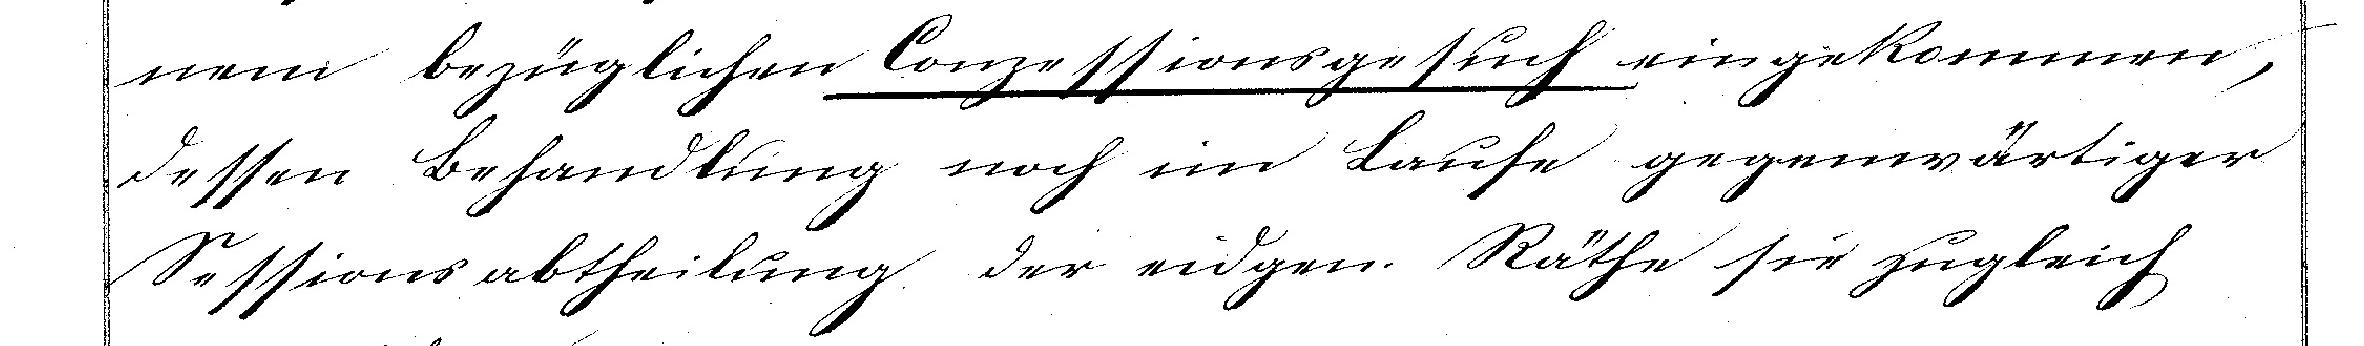 nem bezüglichen Conzessionsgesuch eingekommen,
dessen Behandlung noch im Laufe gegenwärtiger
Sessionsabtheilung der eidgen. Räthe sie zugleich